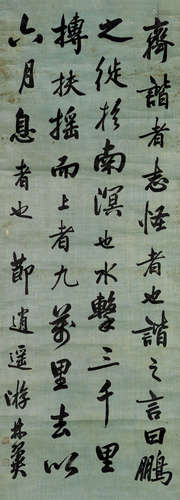 齊諧者志怪者也諧之言曰鵬
之徙於南溟也水擊三千里
摶扶搖而上者九萬里去以
六月息者也 節逍遥游 林英